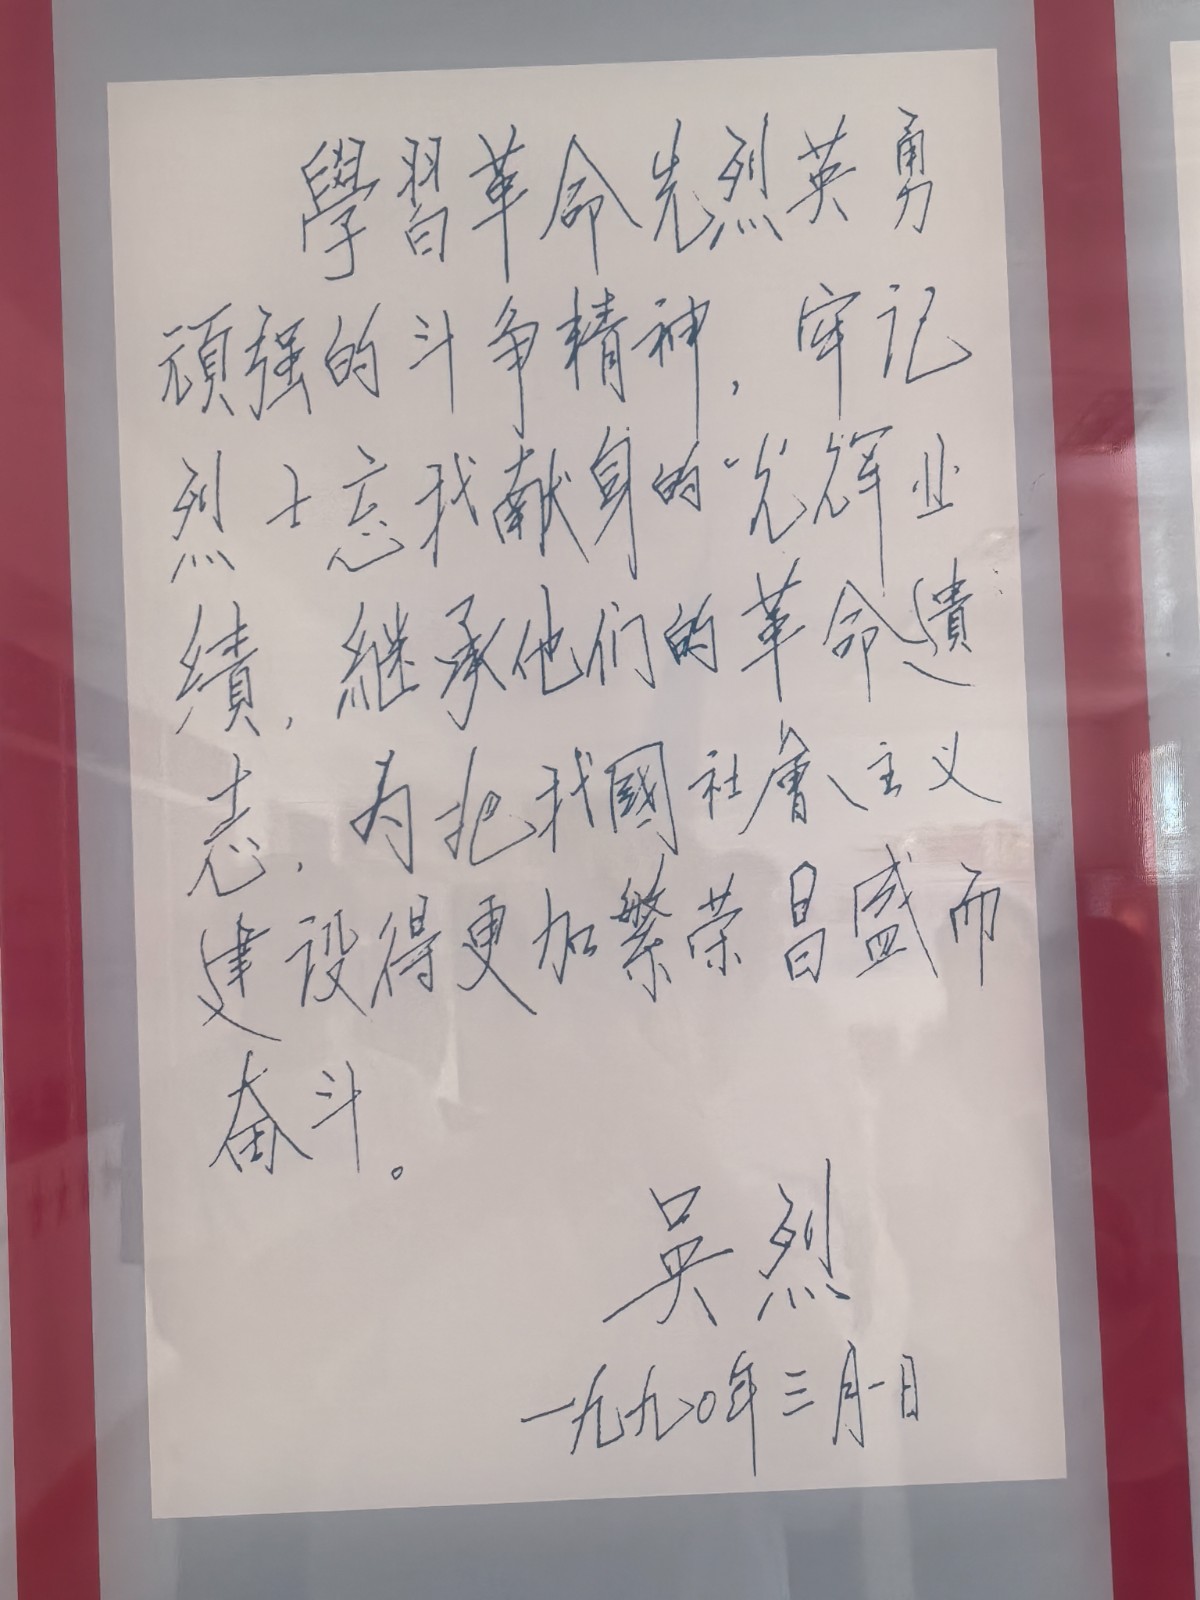 學習革命先烈英勇
頑强的斗争精神，牢记
烈士忘我献身的光辉业
績，継承他们的革命遗
志，为把我國社會主义
建设得更加繁荣昌盛而
奋斗。
吴烈
一九九〇年三月一日